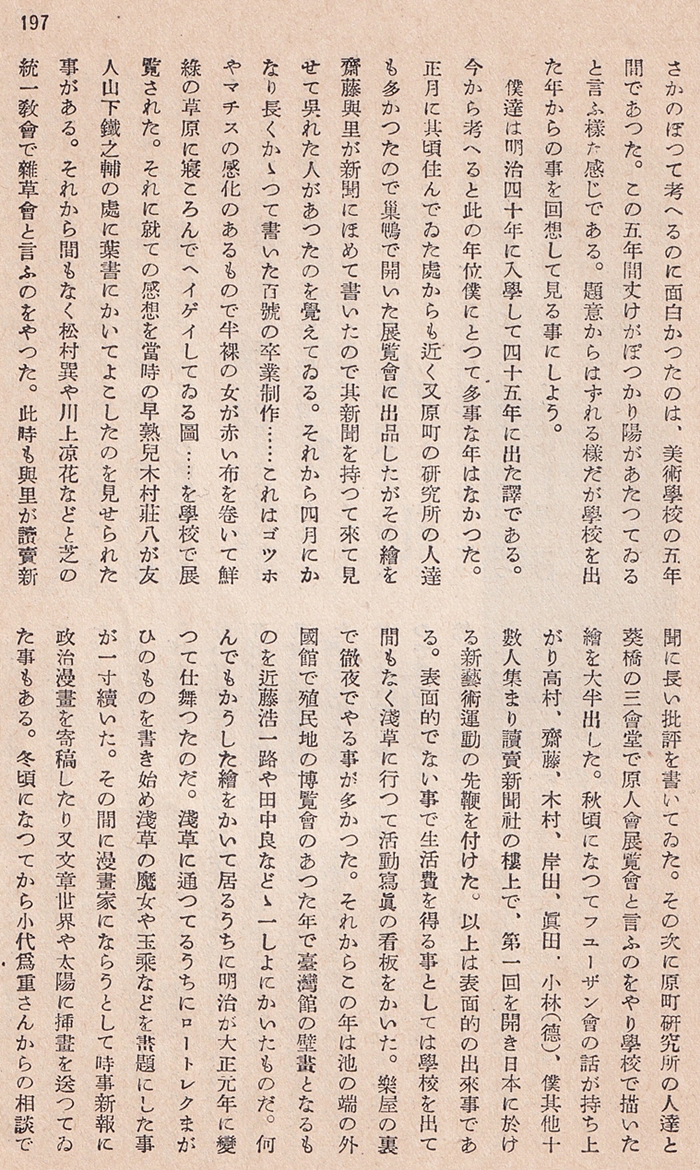 197
さかのぼつて考へるのに面白かつたのは、美術學校の五年
間であつた。この五年間丈けがぽつかり陽があたつてゐる
と言ふ様な感じである。題意からはずれる様だが學校を出
た年からの事を回想して見る事にしよう。
僕達は明治四十年に入學して四十五年に出た譯である。
今から考へると此の年位僕にとつて多事な年はなかつた。
正月に其頃住んでゐた處からも近く又原町の研究所の人達
も多かつたので巢鴨で開いた展覧會に出品したがその繪を
齋藤與里が新聞にほめて書いたので其新聞を持つて來て見
せて呉れた人があつたのを覺えてゐる。それから四月にか
なり長くかゝつて書いた百號の卒業制作……これはゴツホ
やマチスの感化のあるもので半裸の女が赤い布を巻いて鮮
綠の草原に寢ころんでヘイゲイしてゐる圖……を學校で展
覧された。それに就ての感想を當時の早熟兒木村莊八が友
人山下鐵之輔の處に葉書にかいてよこしたのを見せられた
事がある。それから間もなく松村巽や川上凉花などと芝の
統一敎會で雜草會と言ふのをやつた。此時も與里が讀賣新
聞に長い批評を書いてゐた。その次に原町研究所の人達と
葵橋の三會堂で原人會展覧會と言ふのをやり學校で描いた
繪を大半出した。秋頃になつてフユーザン會の話が持ち上
がり高村、齋藤、木村、岸田、眞田、小林(德)、僕其他十
數人集まり讀賣新聞社の樓上で、第一回を開き日本に於け
る新藝術運動の先鞭を付けた。以上は表面的の出來事であ
る。表面的でない事で生活費を得る事としては學校を出て
間もなく淺草に行つて活動寫眞の看板をかいた。樂屋の裏
で徹夜でやる事が多かつた。それからこの年は池の端の外
國館で殖民地の博覧會のあつた年で臺灣館の壁畫となるも
のを近藤浩一路や田中良などゝ一しよにかいたものだ。何
んでもかうした繪をかいて居るうちに明治が大正元年に變
つて仕舞つたのだ。淺草に通つてるうちにロートレクまが
ひのものを書き始め淺草の魔女や玉乘などを畵題にした事
が一寸續いた。その間に漫畫家にならうとして時事新報に
政治漫畫を寄稿したり又文章世界や太陽に挿畫を送つてゐ
た事もある。冬頃になつてから小代爲重さんからの相談で